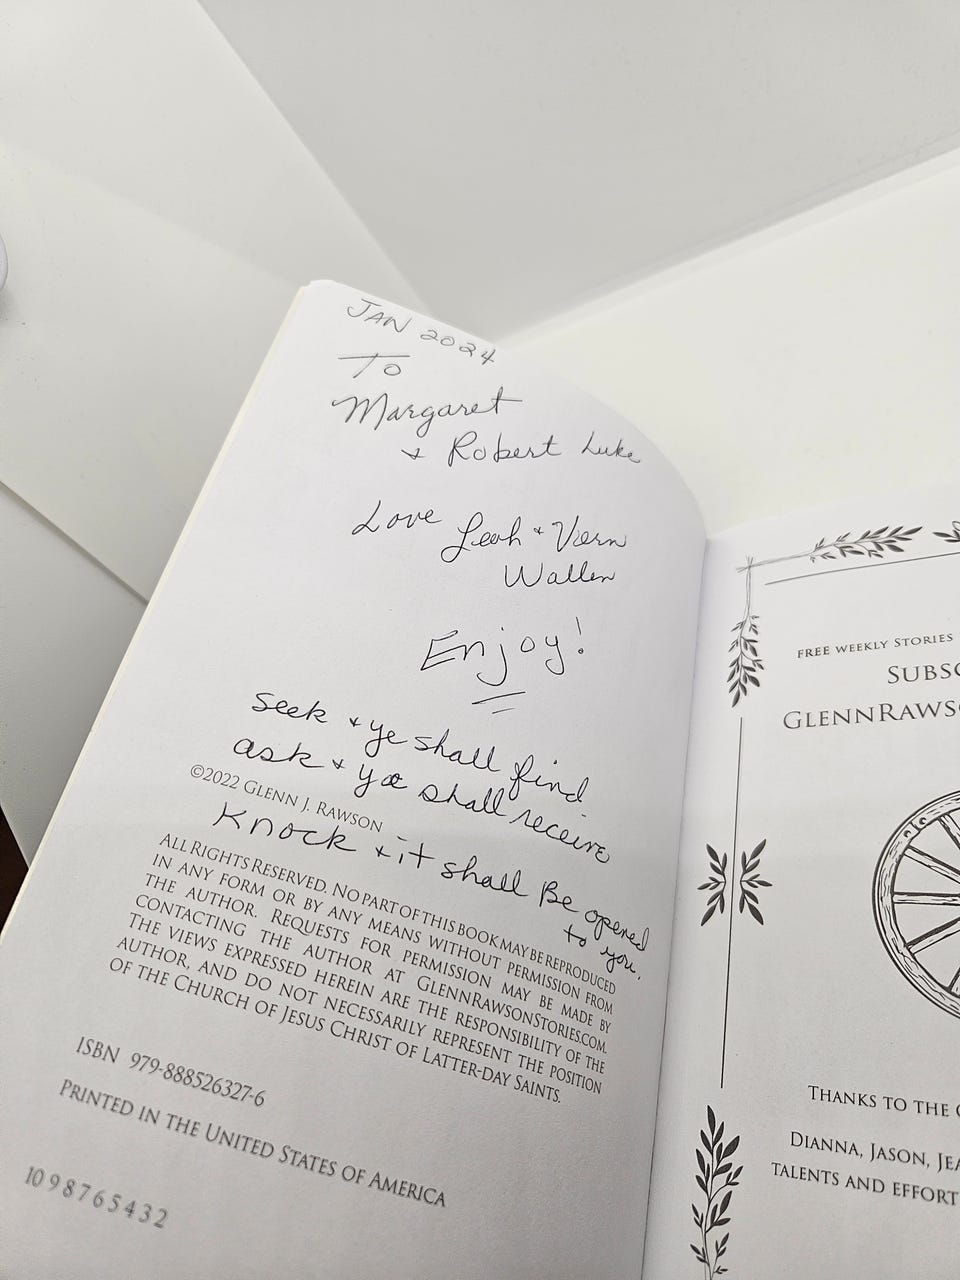 JAN 2024
To
Margaret
& Robert Luke
Love Leah & Vern
Wallen
Enjoy!
Seek & ye shall find
ask & ye shall receive
©2022 GLENN J. RAWSON
Knock & it shall Be opened
to you.
ALL RIGHTS RESERVED. NO PART OF THIS BOOK MAY BE REPRODUCED
IN ANY FORM OR BY ANY MEANS WITHOUT PERMISSION FROM
THE AUTHOR. REQUESTS FOR PERMISSION MAY BE MADE BY
CONTACTING THE AUTHOR AT GLENNRAWSONSTORIES.COM.
THE VIEWS EXPRESSED HEREIN ARE THE RESPONSIBILITY OF THE
AUTHOR, AND DO NOT NECESSARILY REPRESENT THE POSITION
OF THE CHURCH OF JESUS CHRIST OF LATTER-DAY SAINTS.
ISBN 979-888526327-6
PRINTED IN THE UNITED STATES OF AMERICA
10 9 8 7 6 5 4 3 2
FREE WEEKLY STORIES
SUBSC
GLENNRAWS
THANKS TO THE
DIANNA, JASON, JEA
TALENTS AND EFFORT